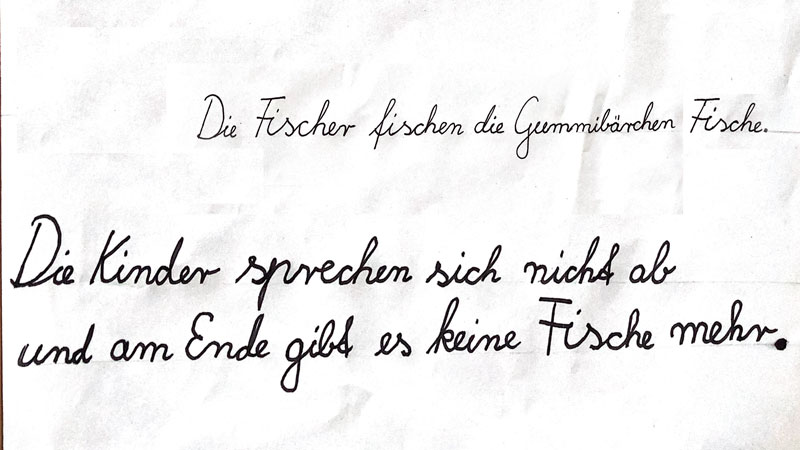 Die Fischer fischen die Gummibärchen Fische.
Die Kinder sprechen sich nicht ab
und am Ende gibt es keine Fische mehr.